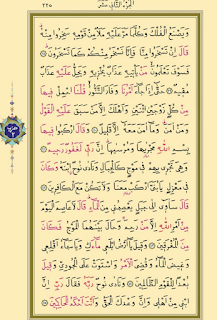 الجزء الثاني عشر ٢٢٥
وَيَصْنَعُ الْفُلْكَ وَكُلَّمَا مَرَّ عَلَيْهِ مَلَأٌ مِنْ قَوْمِهِ سَخِرُوا مِنْهُ
قَالَ إِنْ تَسْخَرُوا مِنَّا فَإِنَّا نَسْخَرُ مِنْكُمْ كَمَا تَسْخَرُونَ
فَسَوْفَ تَعْلَمُونَ مَنْ يَأْتِيهِ عَذَابٌ يُخْزِيهِ وَيَحِلُّ عَلَيْهِ عَذَابٌ
مُقِيمٌ حَتَّى إِذَا جَاءَ أَمْرُنَا وَفَارَ التَّنُّورُ قُلْنَا احْمِلْ فِيهَا
مِنْ كُلٍّ زَوْجَيْنِ اثْنَيْنِ وَأَهْلَكَ إِلَّا مَنْ سَبَقَ عَلَيْهِ الْقَوْلُ
وَمَنْ آمَنَ وَمَا آمَنَ مَعَهُ إِلَّا قَلِيلٌ وَقَالَ ارْكَبُوا فِيهَا
بِسْمِ اللَّهِ مَجْرَاهَا وَمُرْسَاهَا إِنَّ رَبِّي لَغَفُورٌ رَحِيمٌ
وَهِيَ تَجْرِي بِهِمْ فِي مَوْجٍ كَالْجِبَالِ وَنَادَى نُوحٌ ابْنَهُ وَكَانَ
فِي مَعْزِلٍ يَا بُنَيَّ ارْكَبْ مَعَنَا وَلَا تَكُنْ مَعَ الْكَافِرِينَ
قَالَ سَآوِي إِلَى جَبَلٍ يَعْصِمُنِي مِنَ الْمَاءِ قَالَ لَا عَاصِمَ الْيَوْمَ
مِنْ أَمْرِ اللَّهِ إِلَّا مَنْ رَحِمَ وَحَالَ بَيْنَهُمَا الْمَوْجُ فَكَانَ
مِنَ الْمُغْرَقِينَ وَقِيلَ يَا أَرْضُ ابْلَعِي مَاءَكِ وَيَا سَمَاءُ أَقْلِعِي
وَغِيضَ الْمَاءُ وَقُضِيَ الْأَمْرُ وَاسْتَوَتْ عَلَى الْجُودِيِّ وَقِيلَ
بُعْدًا لِلْقَوْمِ الظَّالِمِينَ وَنَادَى نُوحٌ رَبَّهُ فَقَالَ رَبِّ إِنَّ
ابْنِي مِنْ أَهْلِي وَإِنَّ وَعْدَكَ الْحَقُّ وَأَنْتَ أَحْكَمُ الْحَاكِمِينَ